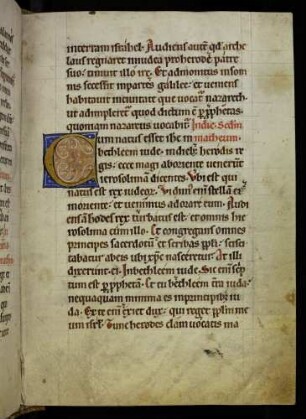 in terram israhel. Audiens autē qd arche
laus regnaret in iudea pro herode patre
suo: timuit illo ire. Et admonitus in som
nis secessit in partes galilee: et ueniens
habitauit in ciuitate que uocat̄ nazareth
ut adimpleret̄ quod dictum ē p prophetas.
quoniam nazareus uocabit̄.
um natus esset ihc in
bethleem iude. in dieb; herodis re
gis: ecce magi ab oriente uenerūt
ierosolimam dicentes. Ubi est qui
natus est rex iudeor̄. Uidim; em̄ stellā ei
in oriente: et uenimus adorare eum. Audi
ens aū herodes rex turbatus est: et omnis hie
rosolima cum illo. Et congregans omnes
principes sacerdotū et scribas ppli: scisci
tabatur ab eis ubi xp̄c nasceretur. At illi
dixerunt ei. In bethleem iude. Sic em̄ scrip
tum est p pphetā. Et tu bethleem tr̄a iuda:
nequaquam minima es in principib; iu
da. Ex te em̄ exiet dux: qui reget pplm me
um isrl. Tunc herodes clam uocatis ma